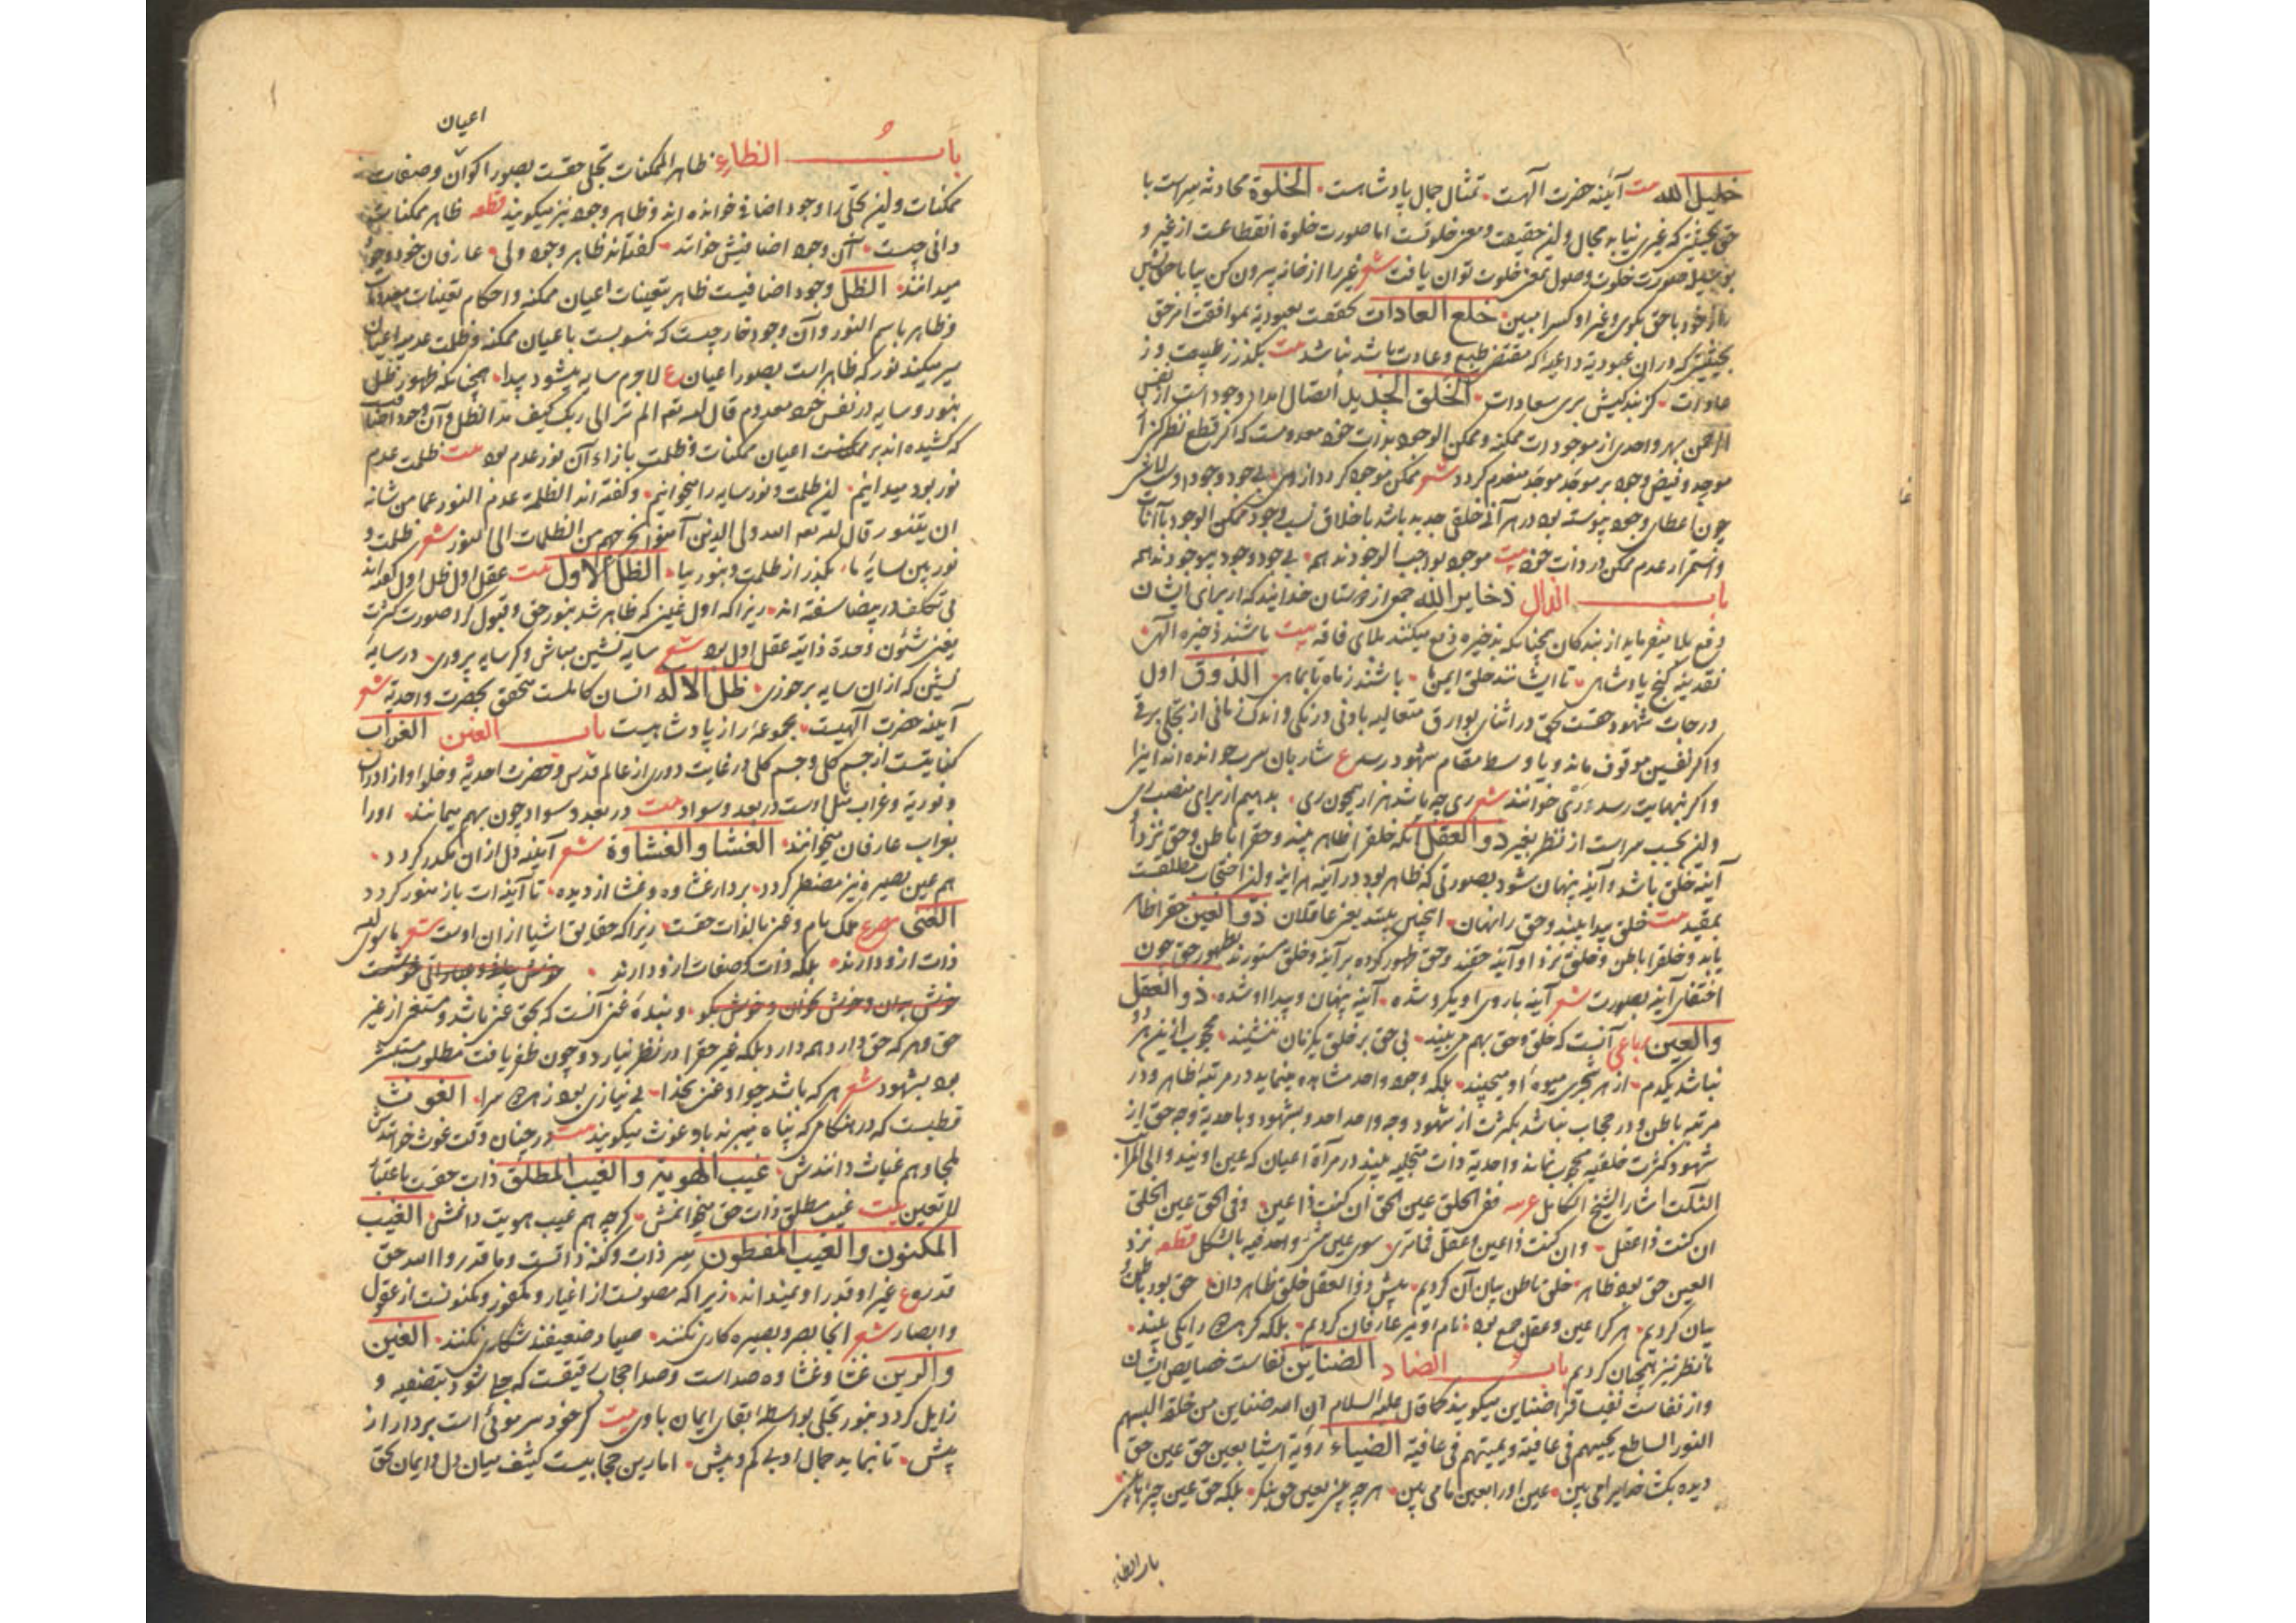 خلیل الله بیت آینه حضرت الهست تمثال جمال پادشاهست الخلوة محادثه سر است با
حق بحیثیتی که غیری نیابد مجال و این حقیقت و معنی خلوتست اما صورت خلوة انقطاعست از غیر و
صورت خلوت وصول بمعنی خلوت توان یافت شعر غیر را از خانه بیرون کن بیا با حق نشین
راز خود با حق بکوی و غیر او کس را مبین خلع العادات تحققت بعبودیة بموافقت امر حق
بحیثیتی که در آن عبودیة داعیه که مقتضی طبع و عادت باشد نباشد بیت بکذر ز طبیعت و ز
عادات کز بندکیش بری سعادات الخلق الجدید اتصال امداد وجود است از نفس
الرحمن بهر واحدی از موجودات ممکنه و ممکن الوجود بذات خود معدومست که اکر قطع نظر کنی از
موجد و فیض وجود بر موجد موجد منعدم کردد شعر ممکن موجود کردد از وی بی جود وجود او
چون اعطای وجود پیوسته بود در هر آنی خلقی جدید باشد باختلاف نسب وجود ممکن الوجود با آنات
و استمرار عدم ممکن در ذات خود بیت موجود بواجب الوجودند همه بی جود وجود بی وجودند همه
باب الذال ذخایر الله جمع از دوستان خدایند که از برای ایشان
دفع بلا میفرماید از بندکان همچنانکه بذخیره دفع میکنند بلای فاقه بیت باشند ذخیره الهی
نقدینه کنج پادشاهی تا ایشانند خلق ایمن باشند ز ماه تا بماهی الذوق اول
درجات شهود حقست بحق در اثنای بوارق متعالیه بادنی درنکی و اندک زمانی از تجلی برقی
و اکر نفسین موقوف ماند و باوسط مقام شهود رسد ع شاربان شرب خوانده اند اینرا
و اکر بنهایت رسد ری خوانند شعر ری چه باشد هزار همچون ری بدهیم از برای منصب
و این بحسب سر است از نظر بغیر ذو العقل آنکه خلق را ظاهر بیند و حق را باطن و حق نزد او
آینه خلق باشد و آینه پنهان شود بصورتی که ظاهر بود در آینه هر آینه و این احتجاب مطلقست
بمقید بیت خلق پیدا بیند و حق را نهان اینچنین بینند بعضی عاقلان ذو العین حق را ظاهر
یابد و خلق را باطن و خلق نزد او آینه حقند و حق ظهور کرده بر آینه و خلق مستورند بظهور حق چون
اختفای آینه بصورت شعر آینه با روی او یکرو شده آینه پنهان و پیدا او شده ذو العقل
والعین رباعی آنست که خلق و حق بهم می بیند بی حق بر خلق یکزمان ننشیند محجوب ازین هر دو
نباشد یکدم از هر شجری میوه او میچیند بلکه وجود واحد مشاهده مینماید در مرتبه ظاهر و در
مرتبه باطن و در حجاب نباشد بکثرت از شهود وجه واحد احد و بشهود و باحدیة وجه حق از
شهود کثرت خلقیه محجوب نماند و احدیة ذات متجلیه بیند در مرآة اعیان که عین اویند و الی المراتب
الثلث اشار الشیخ الکامل عربیه ففی الخلق عین الحق ان کنت ذا عین و فی الحق عین الخلق
ان کنت ذا عقل و ان کنت ذا عین و عقل فما تری سوی عین شیء واحد فیه بالشکل قطعه نزد
العین حق بود ظاهر خلق باطن بیان آن کردیم پیش ذو العقل خلق ظاهر دان حق بود باطن و
بیان کردیم هر که را عین و عقل جمع بود نام او میر عارفان کردیم بلکه کر هر دو را یکی بیند
ما نظر نیز همچنان کردیم باب الضاد الضناین نفاست خصایص ایشان
و از نفاست نفیسان را ضناین میکویند کما قال علیه السلام ان لله ضناین من خلقه البسهم
النور الساطع یحییهم فی عافیة و یمیتهم فی عافیة الضیاء رؤیة اشیا بعین حق عین حق
دیده بکشا خدایرا می بین عین او را بعین ما می بین هر چه بینی بعین حق بنکر بلکه حق عین چیزها می بین
باب الظاء
اعیان
باب الظاء ظاهر الممکنات تجلی حقست بصور اکوان و صفات
ممکنات و این تجلی را وجود اضافی خوانده اند و ظاهر وجود نیز میکویند قطعه ظاهر ممکنات
دانی چیست آن وجود اضافیش خوانند کفته اند ظاهر وجود ولی عارفان خود وجود
میدانند الظل وجود اضافیست ظاهر بتعینات اعیان ممکنه و احکام تعینات
و ظاهر باسم النور و آن وجود خارجیست که منسوبست باعیان ممکنه و ظلمت عدمیه اعیان
میکند نور که ظاهر است بصور اعیان ع لاجرم سایه میشود پیدا همچنانکه ظهور ظل
بنور و سایه در نفس خود معدوم قال الله تعم الم تر الی ربک کیف مد الظل و آن وجود اضافیست
که کشیده اند بر ممکنات اعیان ممکنات و ظلمت بازاء آن نور عدم بود بیت ظلمت عدم
نور بود میدانیم این ظلمت و نور سایه را میخوانیم و کفته اند الظلمة عدم النور عما من شانه
ان یتنور قال الله تعم الله ولی الذین آمنوا یخرجهم من الظلمات الی النور شعر ظلمت و
نور بین سایه ما بکذر از ظلمت و بنور بیا الظل الاول بیت عقل اول ظل اول کفته اند
بی تکلف در بیضا سفته اند زیرا که اول عینی که ظاهر شد بنور حق و قبول کرد صورت کثرت
یعنی شئون وحدة ذاتیه عقل اول بود شعر سایه نشین مباش و کر سایه پروری در سایه
نشین که از آن سایه برخوری ظل الاله انسان کاملست متحقق بحضرت واحدیة شعر
آینه حضرت الهیست مجموعه راز پادشاهیست باب الغین الغراب
کنایتست از جسم کلی و جسم کلی در غایت دوری از عالم قدس و حضرت احدیة و خلو او از ادراک
و نوریة و غراب مثل اوست در بعد و سواد بیت در بعد و سواد چون بهم میمانند او را
بغراب عارفان میخوانند الغشا و الغشاوة شعر آینه دل از آن مکدر کردد
هم عین بصیره نیز مضطر کردد بردار غشاوه و غشا از دیده تا آینه ات باز منور کردد
الغنی مصرع ملک تام و غنی بالذات حقست زیرا که حقایق اشیا از آن اوست شعر ماسوی الله
ذات ازو دارند بلکه ذات و صفات ازو دارند
و بنده غنی آنست که بحق غنی باشد و مستغنی از غیر
حق و هر که حق دارد همه دارد بلکه غیر حق را در نظر نیارد و چون ظفر یافت مطلوب میسر
بود بشهود شعر هر که باشد چو او غنی بخدا بی نیازی بود ز هر دو سرا الغوث
قطبست که در هنکامی که پناه میبرند باو غوث میکویند بیت در چنان وقت غوث خوانندش
ملجا و هم غیاث دانندش غیب الهویة و الغیب المطلق ذات حقست باعتبار
لا تعین بیت غیب مطلق ذات حق میخوانمش کرچه هم غیب هویت دانمش الغیب
المکنون و الغیب المصون سر ذات و کنه ذاتست و ما قدروا الله حق
قدره ع غیر او قدر او نمیداند زیرا که مصونست از اغیار و مکنونست از عقول
و ابصار شعر آنجا بصر و بصیره کاری نکنند صیاد ضعیفند شکاری نکنند الغین
و الرین غشا و غشاوه صداست و صدا حجاب رقیقست که جلی شود بتصفیه و
زایل کردد بنور تجلی بواسطه ابقای ایمان باوی بیت کر خود سر موئی است بردار از
پیش تا بنماید جمال او بی کم و بیش اما رین حجابیست کثیف میان دل و ایمان بحق